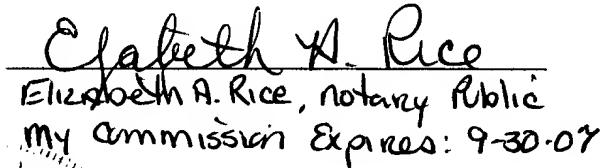 Elizabeth A. Rice
Elizabeth A. Rice, notary Public
My Commission Expires: 9-30-07